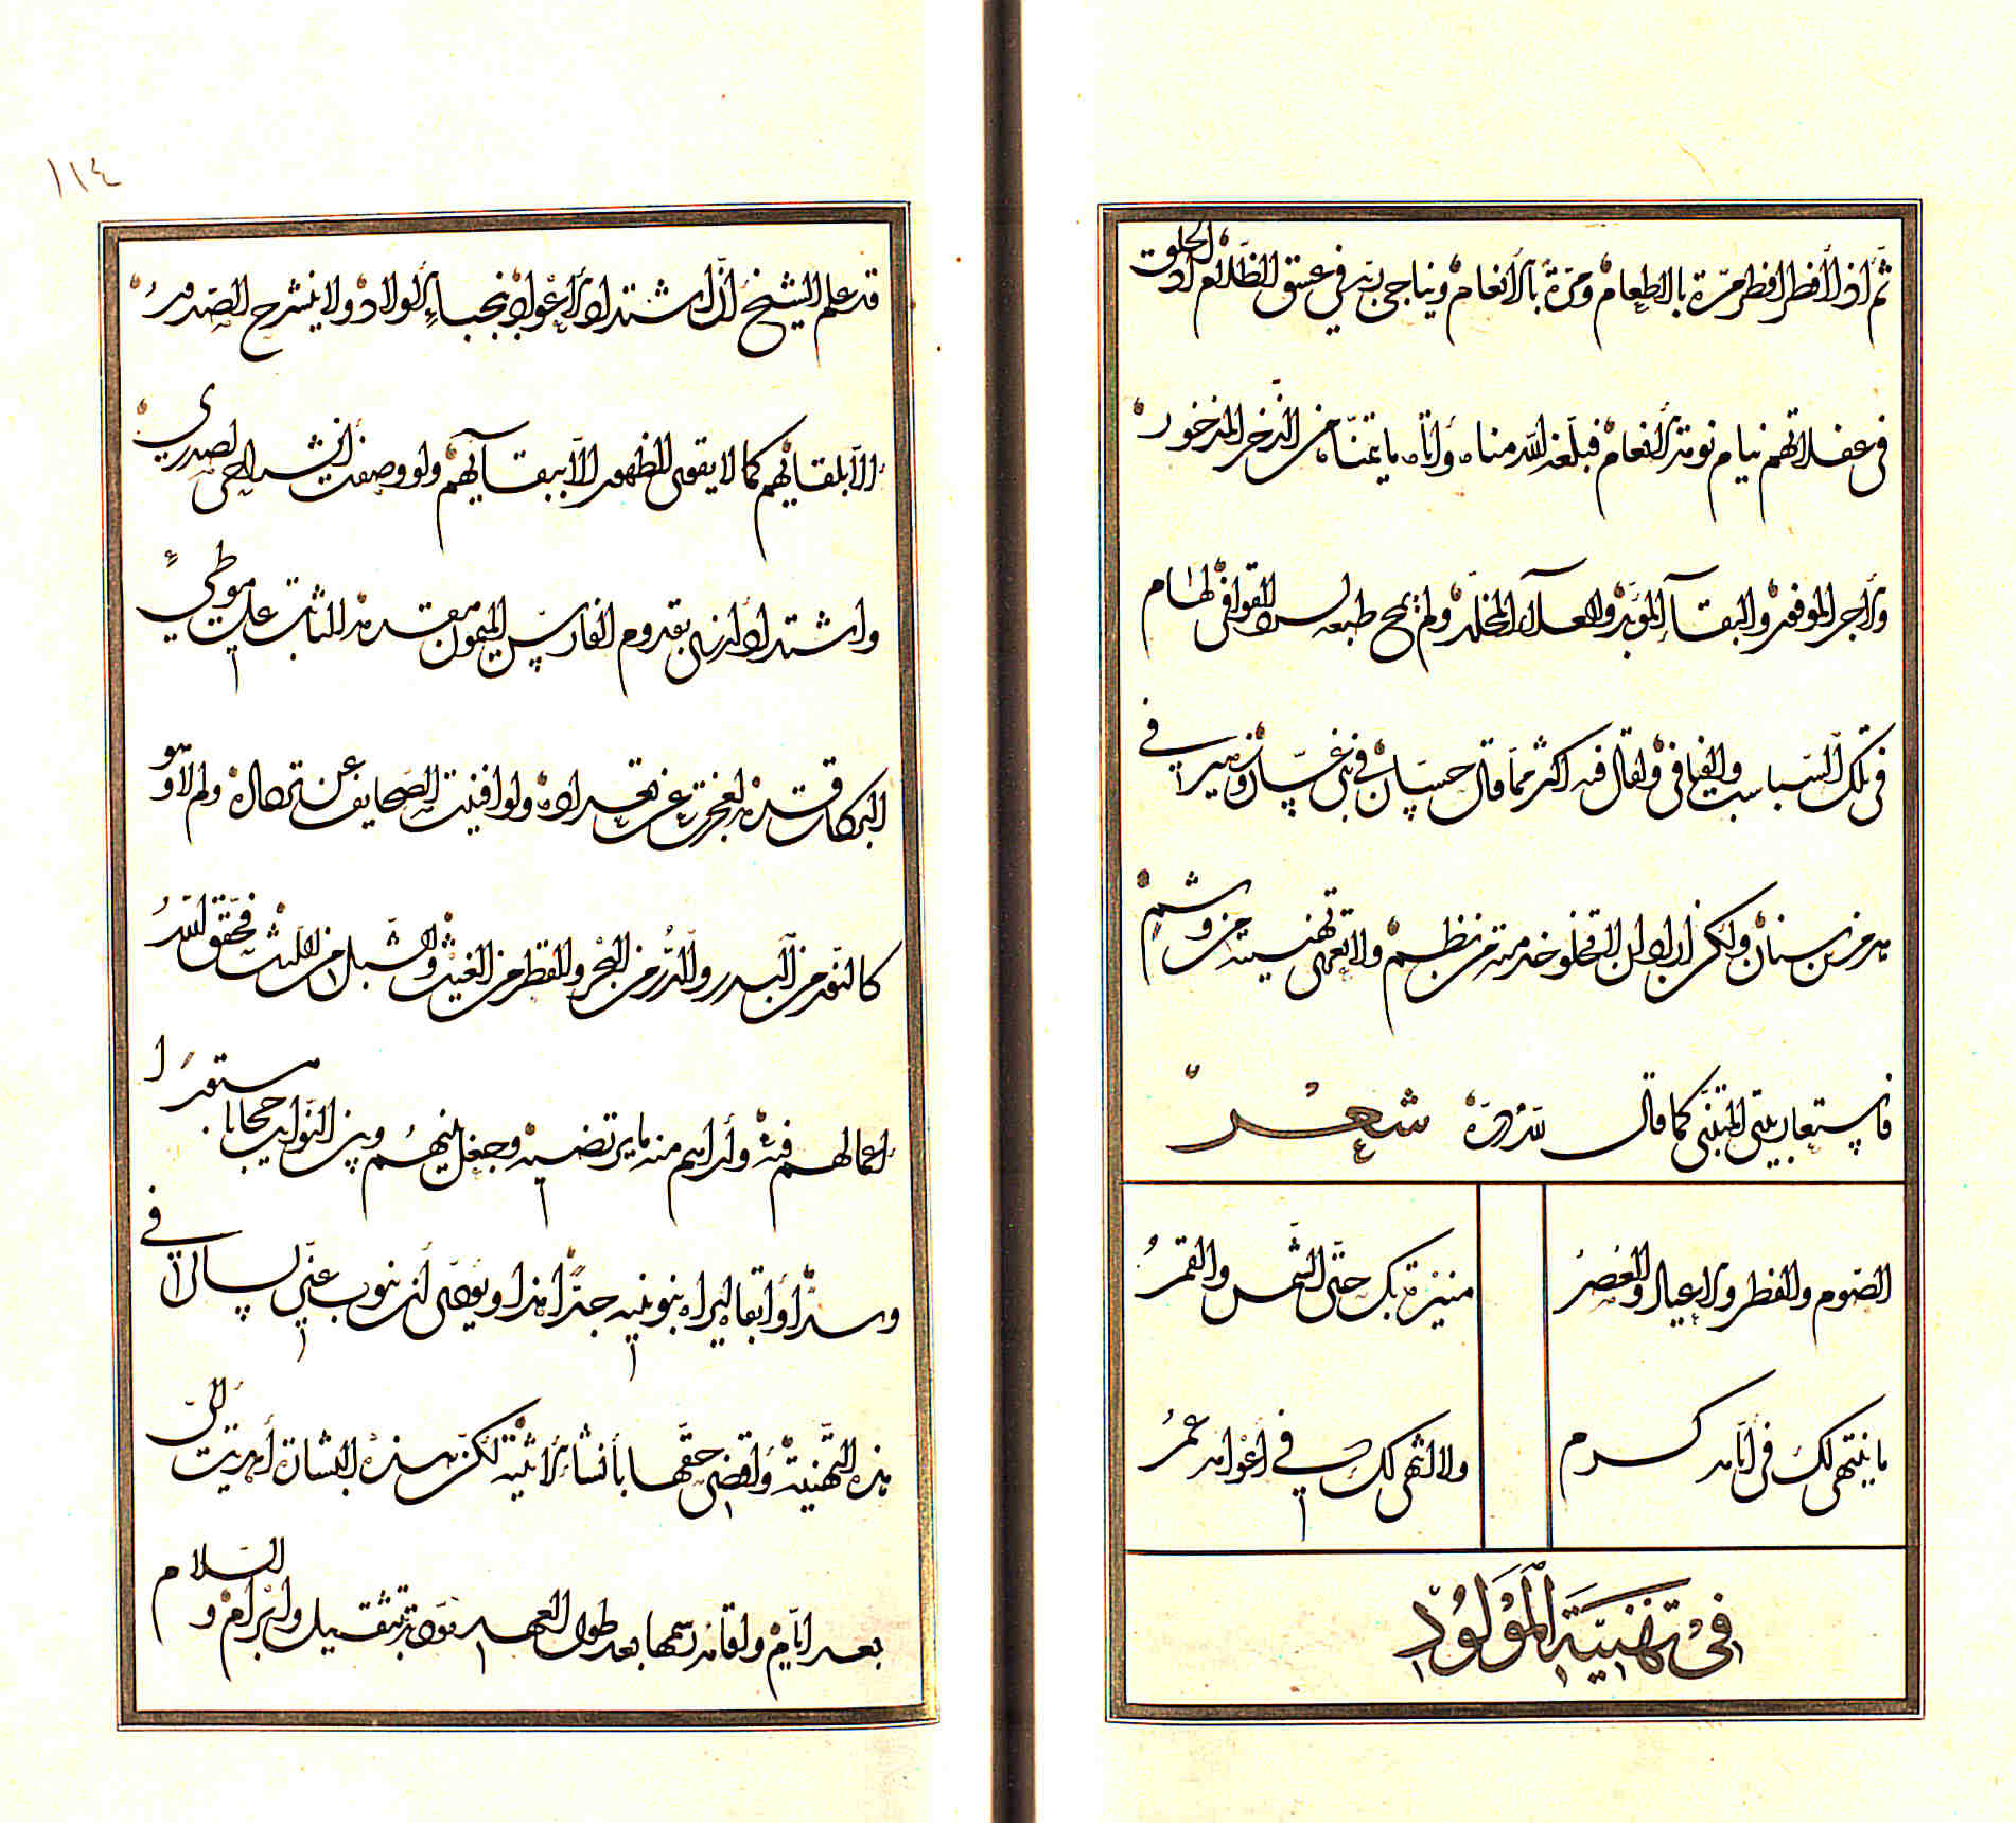 ثم اذا أفطر افطر مرّة بالطعام ومرّة بالأنعام ويناجى ربّه فى غسق الظلام اذ الخلق
فى غفلاتهم نيام نومة الأنعام فبلّغه الله مناه وأتاه ما يتمنّاه من الذخر المذخور
والأجر الموفور والبقاء المؤبّد والعلاء المخلّد ولم طبعه القوافى لهام
فى تلك السباسب والفيافى ولقال فيه اكثر ممّا قال حسّان فى بنى غسّان وزهير فى
هرم بن سنان ولكن اراد ان لا تخلو خدمته من نظم ولا تهنيته من وشم
فاستعار بيتى المتنبّى كما قال لله درّه شعر
الصوم والفطر والاعياد والعصر
منيرة بك حتّى الشمس والقمر
ما ينتهى لك فى أيّامه كرم
ولا انتهى لك فى أعوامه عمر
فى تهنية المولود
١١٤
قد علم الشيخ أنّ اشتداد الأعواد بنجباء الأولاد ولا ينشرح الصدور
الّا بلقائهم كما لا يقوى الظهور الّا ببقائهم ولو وصفت انشراح صدرى
واشتداد ازرى بقدوم الفارس الميمون مقدمه الثابت على موطئ
البركات قدمه لعجزت عن تعداده ولو افنيت الصحايف عن تمداده ولم لا وهو
كالنور من البدر والدرّ من البحر والقطر من الغيث والشبل من الليث فحقّق الله
امالهم فيه وأراهم منه ما يرتضيه وجعل بينهم وبين النوايب حجابا مستورا
وسدّا وأبقاه ليراه بنو بنيه جدّا هذا ويرضى أن ينوب عنّى لسانى فى
هذه التهنية وأقضى حقّها بأنشاء الأثنية لكن هذه البشارة أهديت الىّ
بعد ايّام ولقاه رسمها بعد طول العهد بتثقيل وابرام والسلام